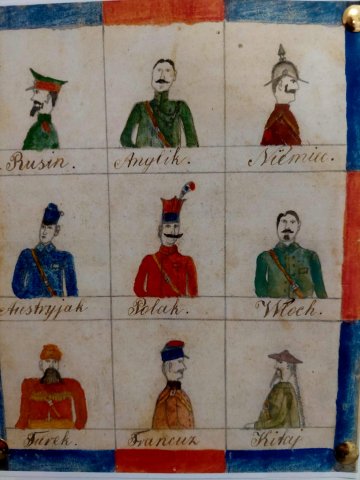 Rusin. Anglik. Niemiec.
Austryjak Polak. Włoch.
Turek. Francuz Kitaj